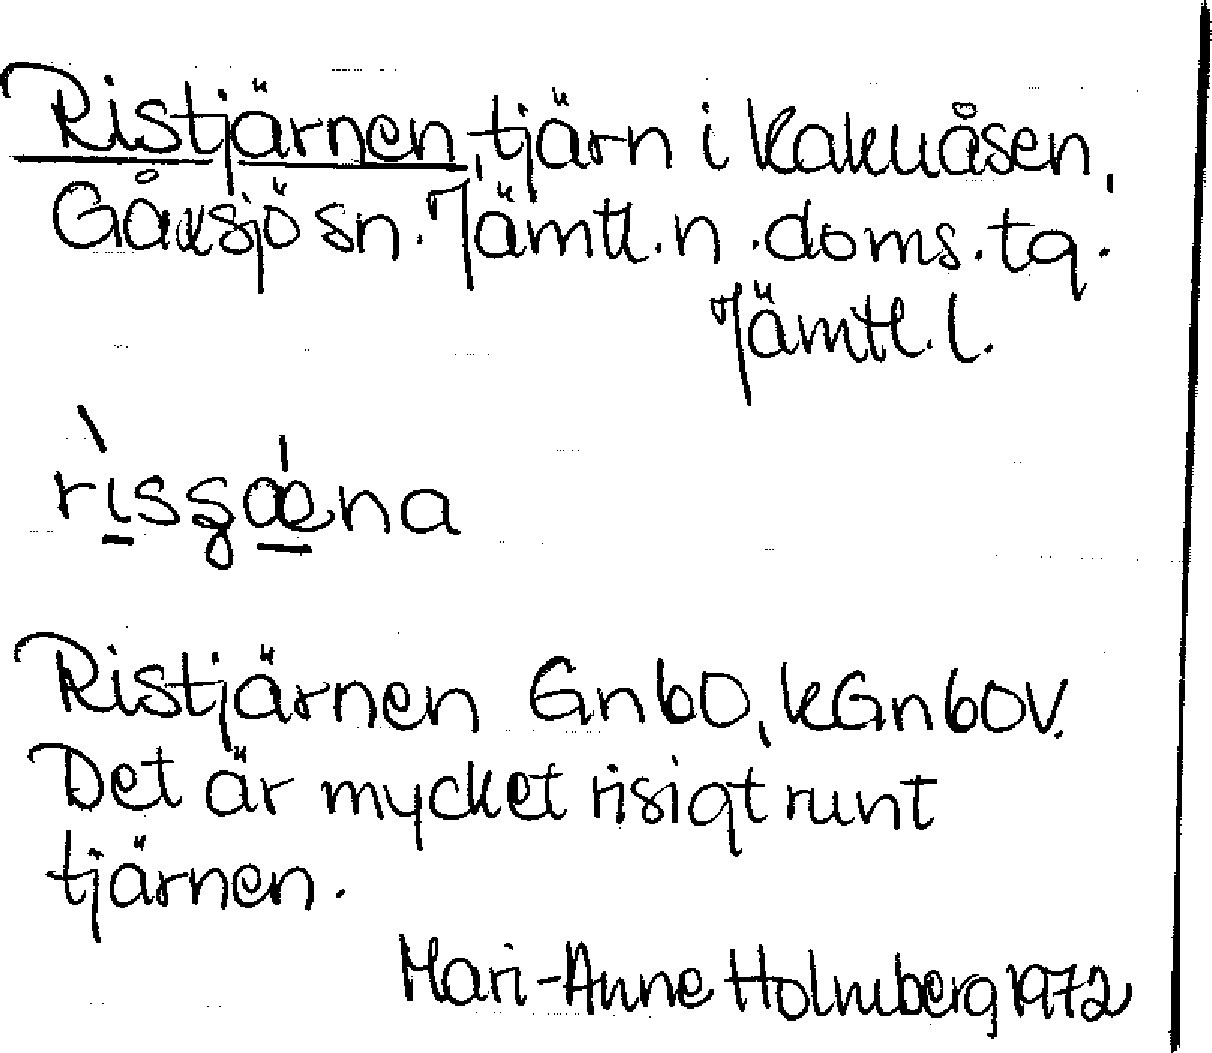 Ristjärnen, tjärn i Kakuåsen,
Gåxsjö sn. Jämtl. n. doms. tg.
Jämtl. l.
rìsʂǽna
Ristjärnen Gnb0, kGnb0V.
Det är mycket risigt runt
tjärnen.
Mari-Anne Holmberg 1972